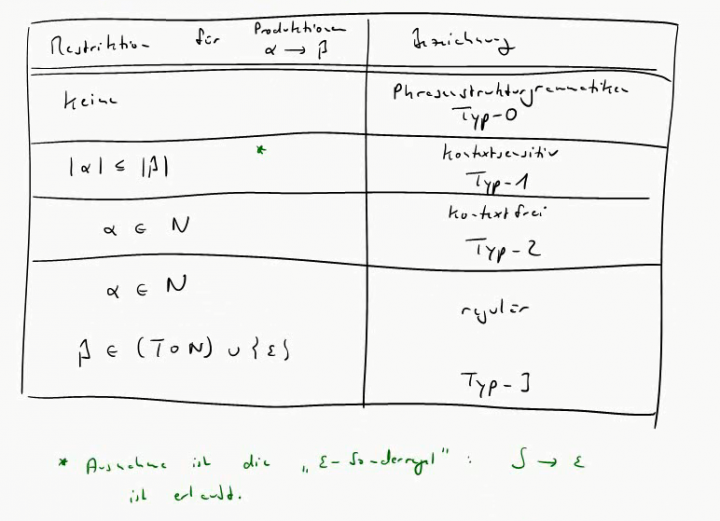 Restriktion für Produktionen α → β
Bezeichnung
Keine
Phrasenstrukturgrammatiken
Typ-0
|α| ≤ |β| *
Kontextsensitiv
Typ-1
α ∈ N
Kontextfrei
Typ-2
α ∈ N
regulär
β ∈ (T∘N) ∪ {ε}
Typ-3
* Ausnahme ist die „ε-Sonderregel": S → ε
ist erlaubt.